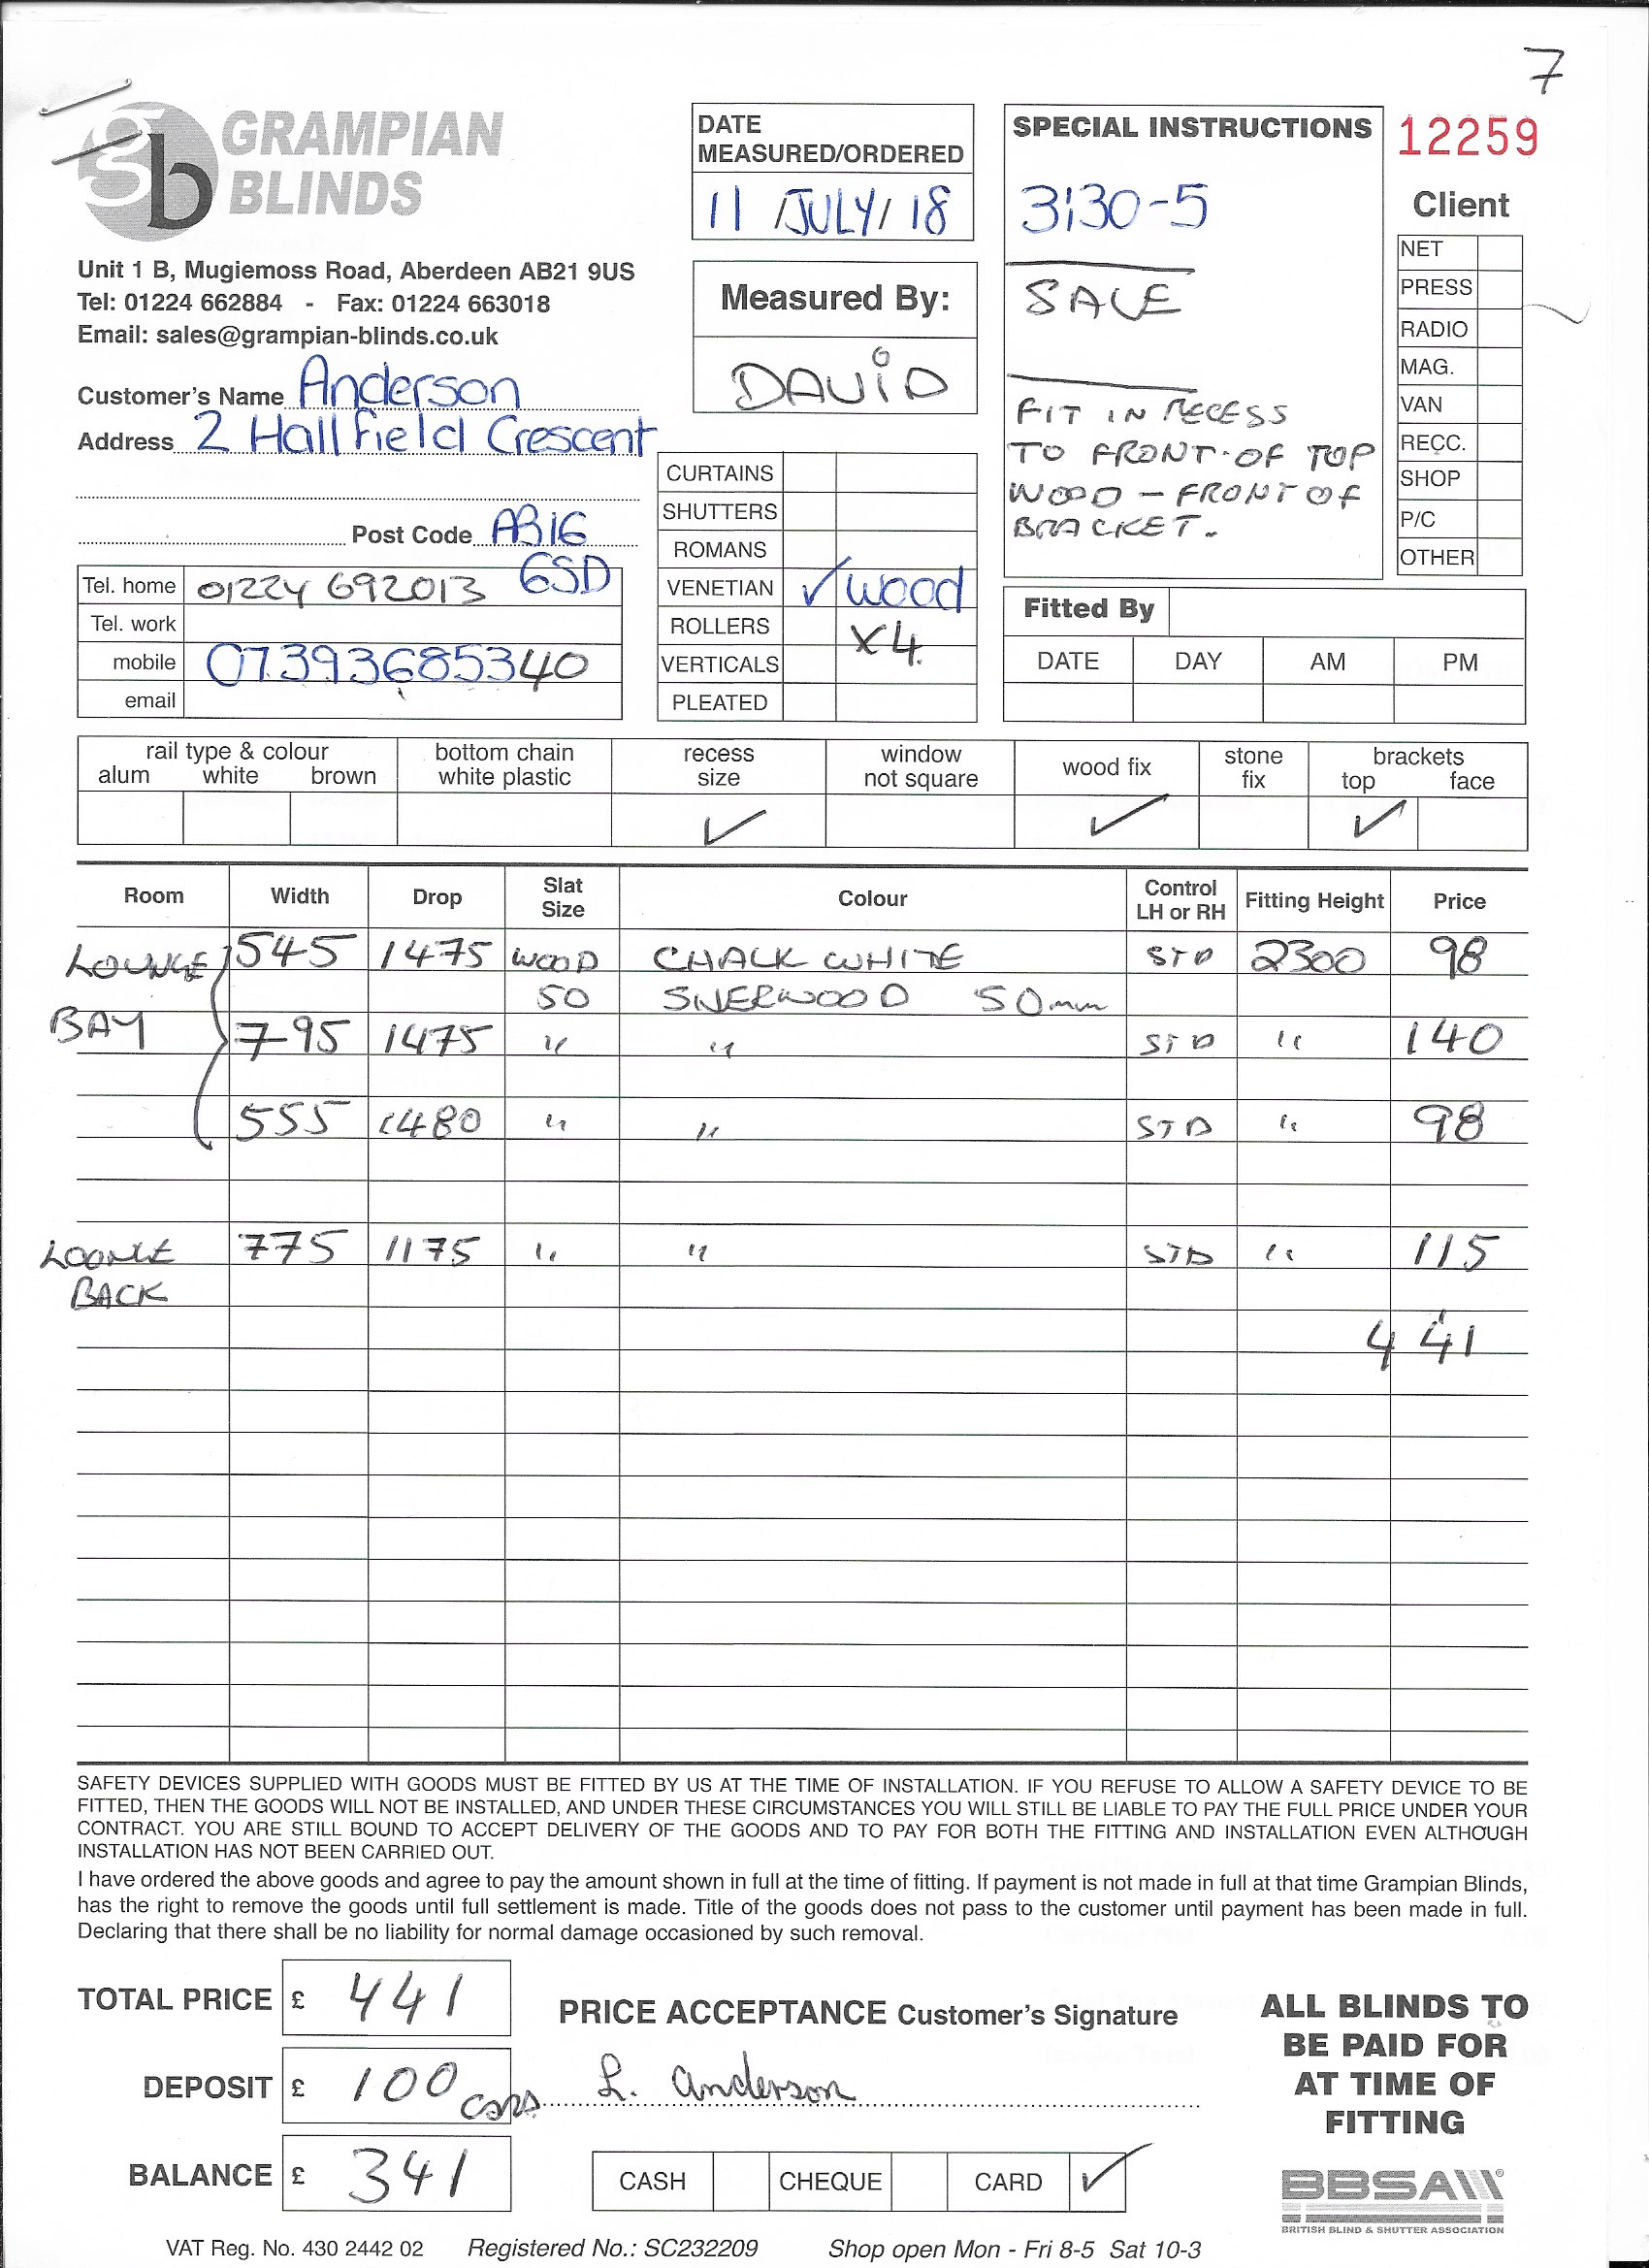 7
gb GRAMPIAN
BLINDS
Unit 1 B, Mugiemoss Road, Aberdeen AB21 9US
Tel: 01224 662884 - Fax: 01224 663018
Email: sales@grampian-blinds.co.uk
Customer's Name Anderson
Address 2 Hallfield Crescent
Post Code AB16
6SD
Tel. home 01224 692013
Tel. work
mobile 07393685340
email
DATE
MEASURED/ORDERED
11 /JULY/ 18
Measured By:
DAVID
CURTAINS
SHUTTERS
ROMANS
VENETIAN ✓ wood
ROLLERS X4
VERTICALS
PLEATED
SPECIAL INSTRUCTIONS
3:30-5
SALE
FIT IN RECESS
TO FRONT OF TOP
WOOD - FRONT OF
BRACKET.
12259
Client
NET
PRESS
RADIO
MAG.
VAN
RECC.
SHOP
P/C
OTHER
Fitted By
DATE DAY AM PM
rail type & colour bottom chain recess window wood fix stone brackets
alum white brown white plastic size not square fix top face
✓ ✓ ✓
Room Width Drop Slat Size Colour Control LH or RH Fitting Height Price
LOUNGE 545 1475 WOOD CHALK WHITE STD 2300 98
50 SHERWOOD 50mm
BAY 795 1475 " " STD " 140
555 1480 " " STD " 98
LOUNGE 775 1175 " " STD " 115
BACK
441
SAFETY DEVICES SUPPLIED WITH GOODS MUST BE FITTED BY US AT THE TIME OF INSTALLATION. IF YOU REFUSE TO ALLOW A SAFETY DEVICE TO BE
FITTED, THEN THE GOODS WILL NOT BE INSTALLED, AND UNDER THESE CIRCUMSTANCES YOU WILL STILL BE LIABLE TO PAY THE FULL PRICE UNDER YOUR
CONTRACT. YOU ARE STILL BOUND TO ACCEPT DELIVERY OF THE GOODS AND TO PAY FOR BOTH THE FITTING AND INSTALLATION EVEN ALTHOUGH
INSTALLATION HAS NOT BEEN CARRIED OUT.
I have ordered the above goods and agree to pay the amount shown in full at the time of fitting. If payment is not made in full at that time Grampian Blinds,
has the right to remove the goods until full settlement is made. Title of the goods does not pass to the customer until payment has been made in full.
Declaring that there shall be no liability for normal damage occasioned by such removal.
TOTAL PRICE £ 441
DEPOSIT £ 100
BALANCE £ 341
PRICE ACCEPTANCE Customer's Signature
L. Anderson
CASH CHEQUE CARD ✓
ALL BLINDS TO
BE PAID FOR
AT TIME OF
FITTING
BBSA
BRITISH BLIND & SHUTTER ASSOCIATION
VAT Reg. No. 430 2442 02 Registered No.: SC232209 Shop open Mon - Fri 8-5 Sat 10-3